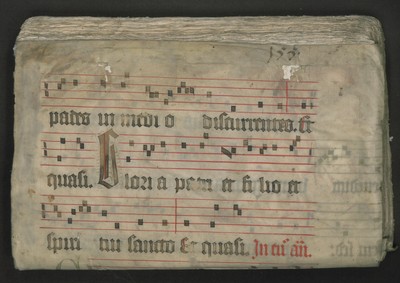 155
pates in medi o discurrentes. Et
quasi. Glori a patri et fi lio et
spiri tui sancto Et quasi. In eu. an.